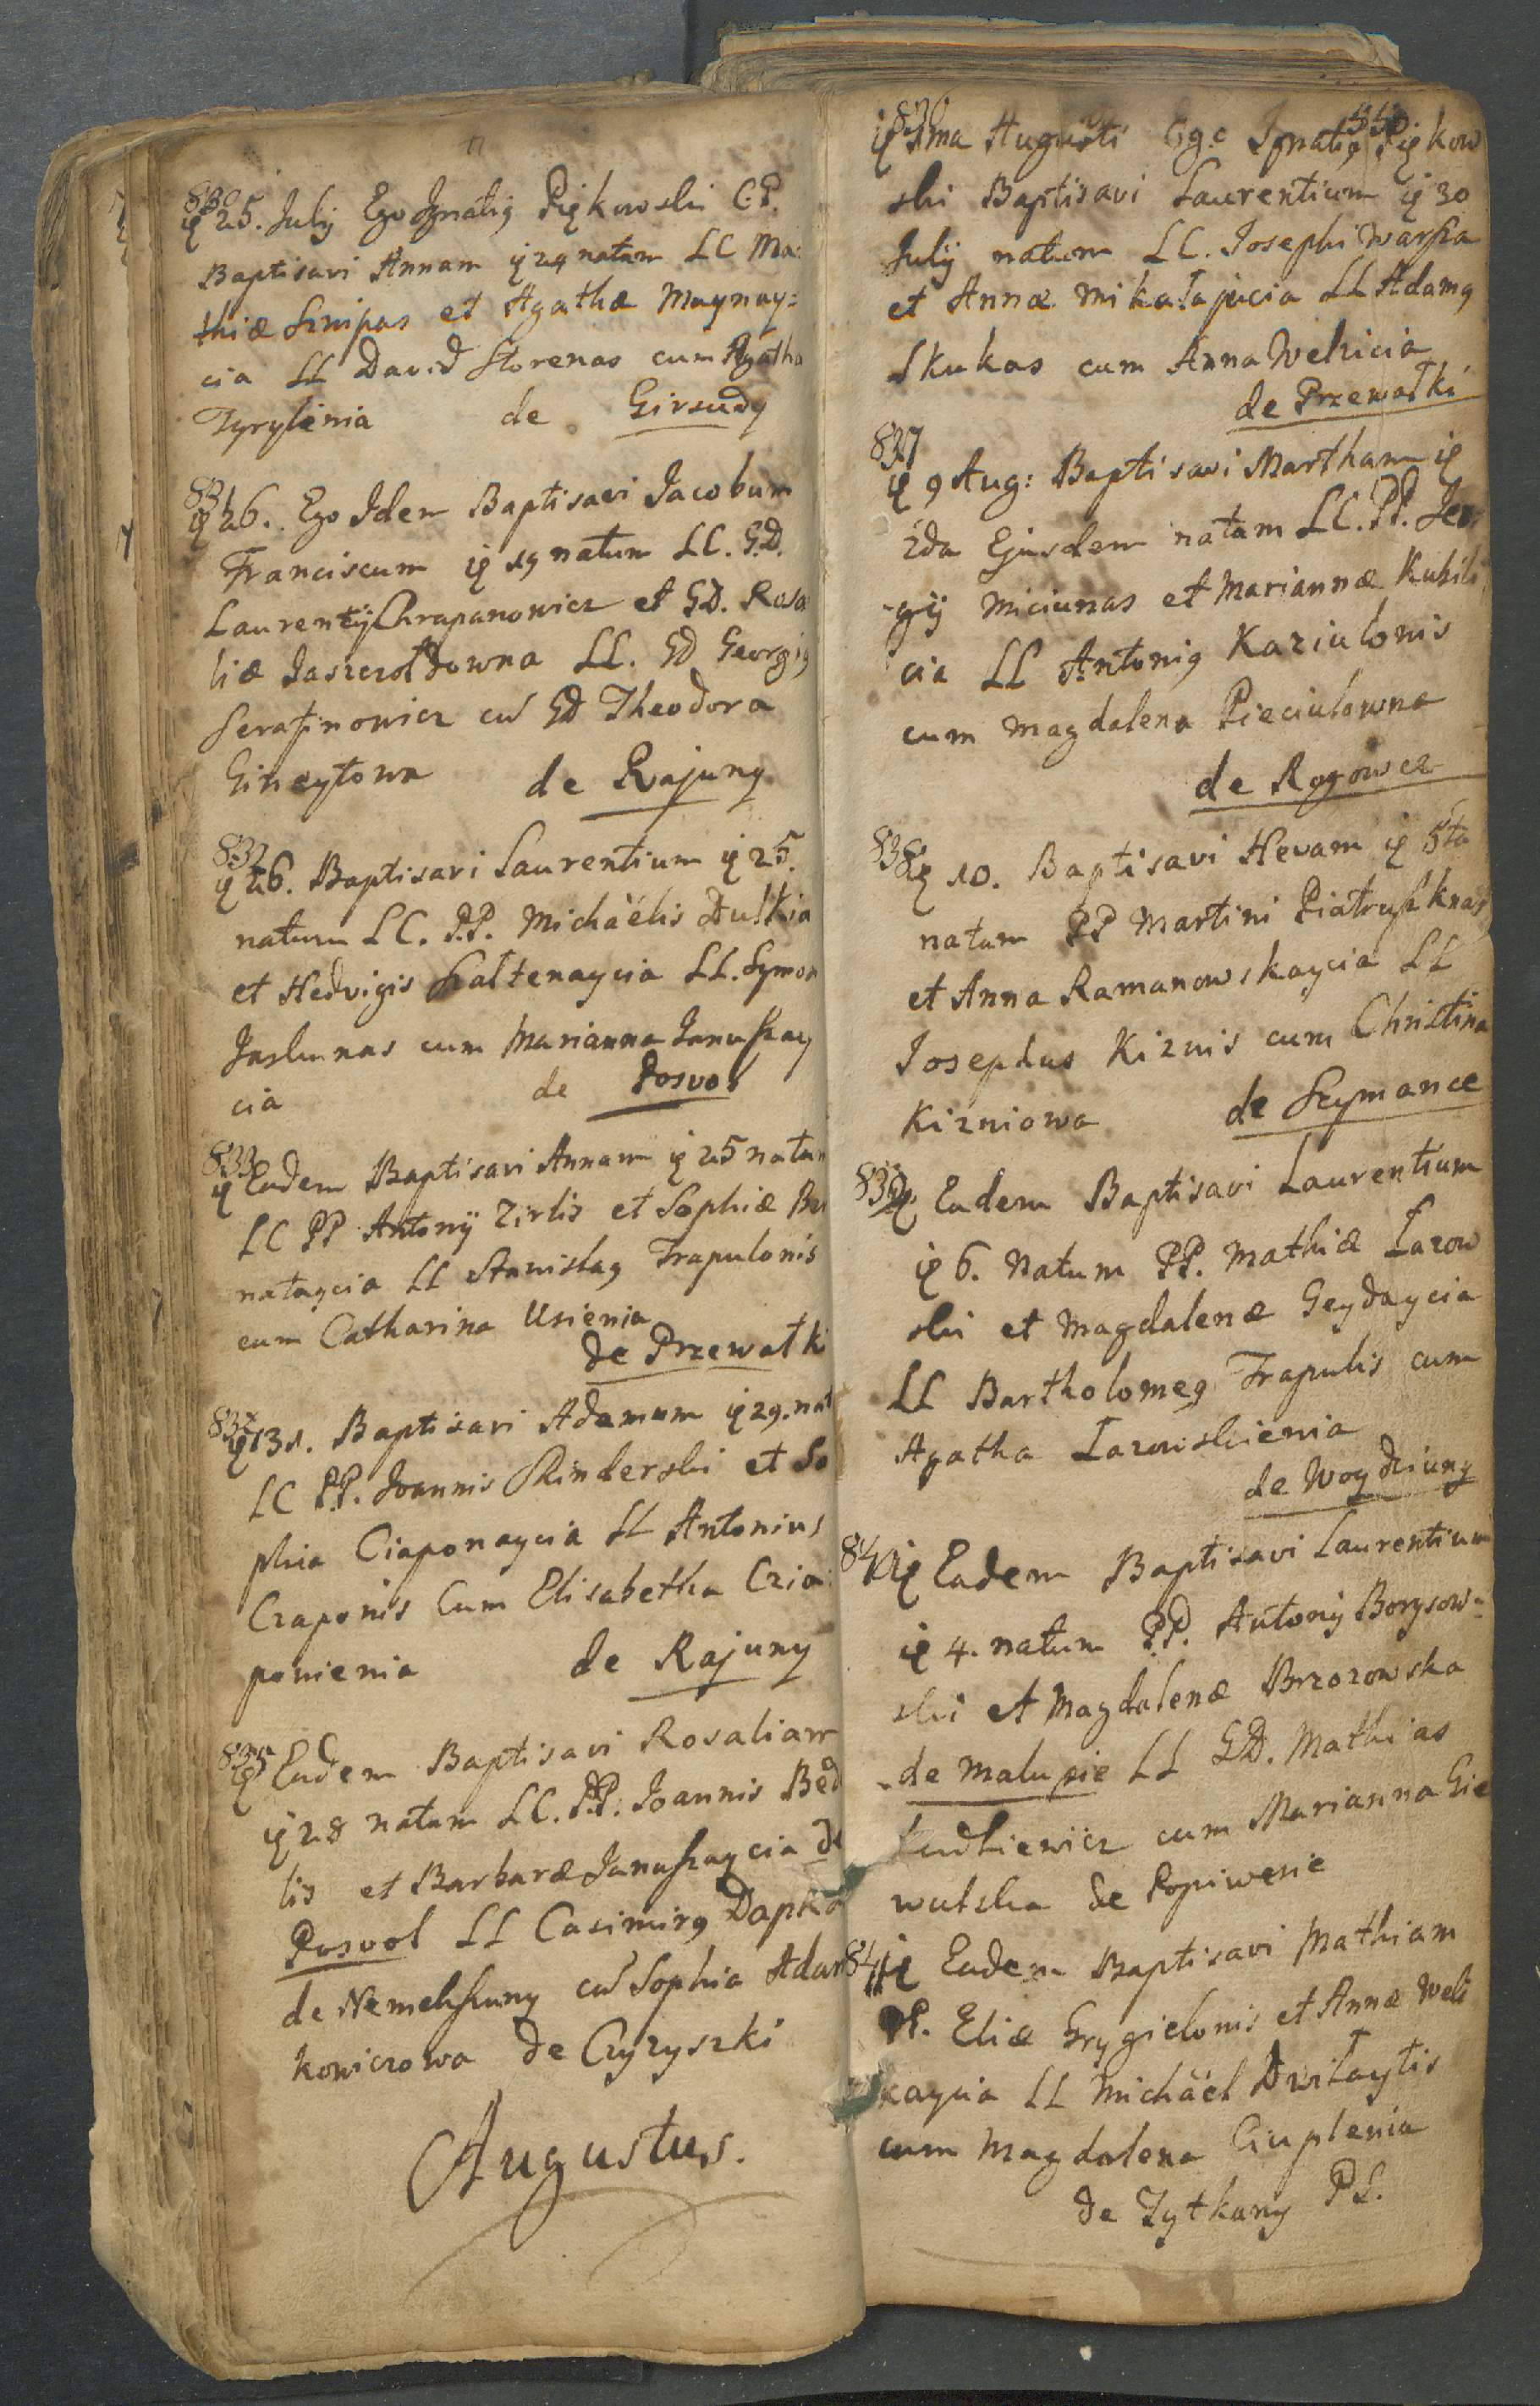 830
25. Julij Ego Ignatig Piękowski C.P.
Baptisavi Annam 24 natam LC Ma:
thiæ Sznipas et Agathæ Maynay:
cia LL David Storenas cum Agatha
Tyrylenia de Girsudy
831
26. Ego Idem Baptisavi Jacobum
Franciscum 19 natum LC. GD.
Laurentij Chrapanowicz et GD. Rosa
liæ Jaszczołdowna LL. GD Georgig
Serafinowicz cu GD Theodora
Gineytowa de Rajuny
832
26. Baptisavi Laurentium 25.
natum LC. PP. Michäelis Dulkia
et Hedvigis Szaltenaycia LL. Symon
Jaslunas cum Marianna Januszay
cia de Posvol
833
Eadem Baptisavi Annam 25 natam
LC PP Antonij Zirlis et Sophiæ Ber
nataycia LL Stanislag Trapulonis
cum Catharina Usienia
de Przewałki
834
31. Baptisavi Adamum 29. nat
LC PP. Joannis Rinderski et So
phia Ciaponaycia LL Antonius
Czaponis Cum Elisabetha Czia:
ponienia de Rajuny
835
Eadem Baptisavi Rosaliam
28 natam LC. PP. Joannis Bed
lis et Barbaræ Januszaycia de
Posvol LL Casimirg Dapka
de Nemekszuny cu Sophia Adam
kowiczowa de Czyzyszki
Augustus.
836 550.
Ima Augusti Ego Ignatig Piękow
ski Baptisavi Laurentium 30
Julij natum LC. Josephi Warsza
et Annæ Mikałajucia LL Adamg
Skukas cum Anna Welzicia
de Przewałki
837
9 Aug: Baptisavi Martham
2da Ejusdem natam LC. PP. Jer
gij Miciunas et Mariannæ Kubili
cia LL Antonig Kaziulonis
cum Magdalena Pieciulowna
de Rogowce
838
10. Baptisavi Hevam 5ta
natam PP Martini Piatruszknas
et Anna Ramanowskaycia LL
Josephus Kiznis cum Christina
Kizniowa de Szymance
839
Eadem Baptisavi Laurentium
6. Natum PP. Mathiæ Łazow
ski et Magdalenæ Geydaycia
LL Bartholomeg Trapulis cum
Agatha Łazowskienia
de Woydziuny
840
Eadem Baptisavi Laurentium
4. natum PP. Antonij Borysow=
ski et Magdalenæ Brzozowska
de Malupie LL GD. Mathias
Kudkiewicz cum Marianna Gie
wulska de Popiwesie
841
Eadem Baptisavi Mathiam
PP. Eliæ Grygielonis et Annæ Weli
kaycia LL Michäel Dwilaytis
cum Magdalena Ciuplenia
de Zytkany PS.